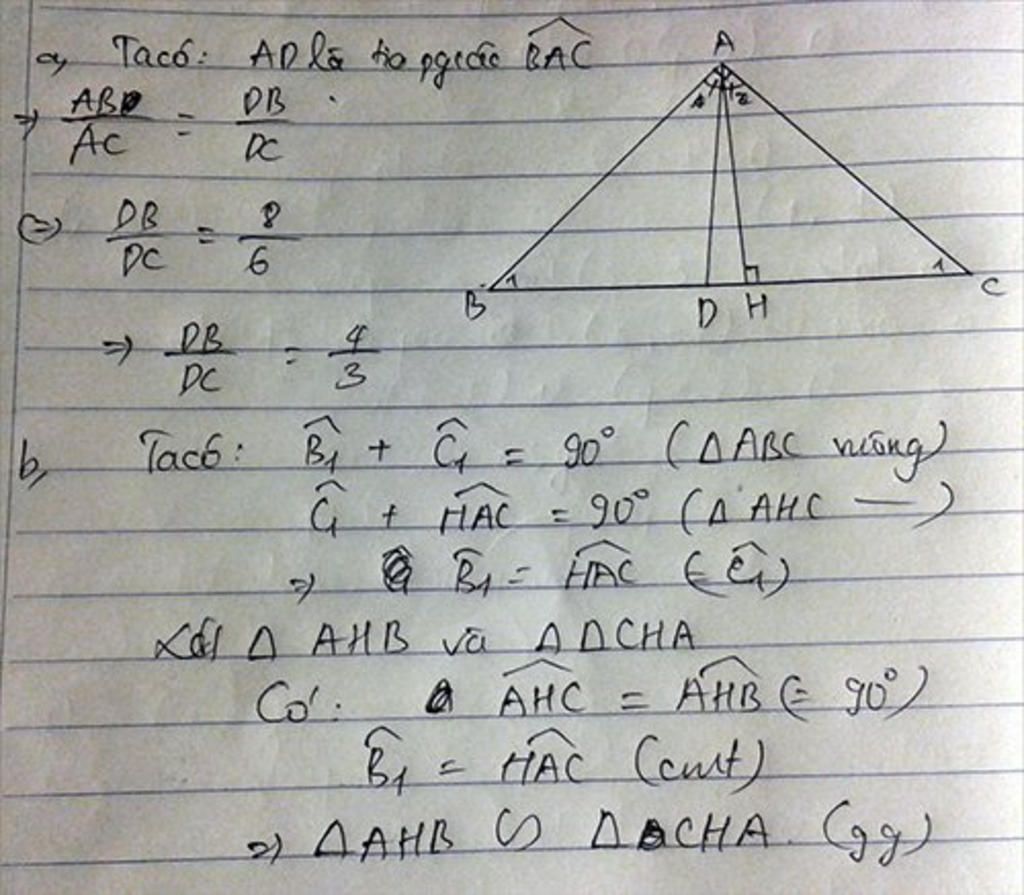 a, Ta có: AD là tia pgiác BAC
=> AB/AC = DB/DC
<=> DB/DC = 8/6
=> DB/DC = 4/3
A
1 2
B 1 D H 1 C
b, Ta có: B̂1 + Ĉ1 = 90° (Δ ABC vuông)
Ĉ1 + HAC = 90° (Δ AHC —)
=> B̂1 = HAC (= Ĉ1)
Xét Δ AHB và Δ ΔCHA
Có: AHC = AHB (= 90°)
B̂1 = HAC (cmt)
=> Δ AHB ∽ Δ CHA. (gg)